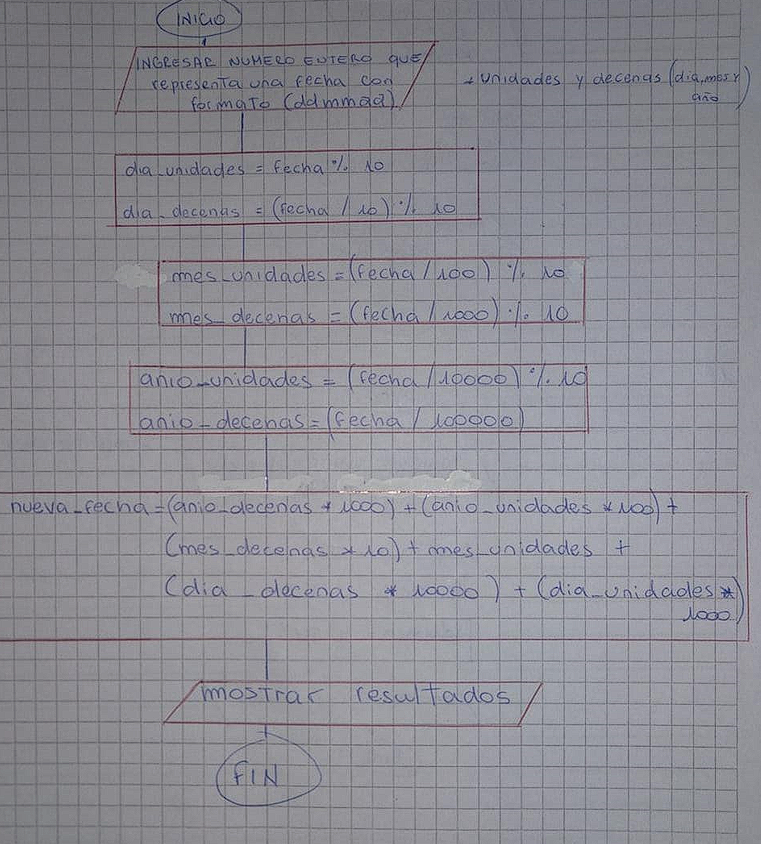 INICIO
INGRESAR NUMERO ENTERO QUE
representa una fecha con
formato (ddmmaa)
+ unidades y decenas (dia, mes y
año
dia_unidades = fecha % 10
dia_decenas = (fecha / 10) % 10
mes_unidades = (fecha / 100) % 10
mes_decenas = (fecha / 1000) % 10
anio_unidades = (fecha / 10000) % 10
anio_decenas = (fecha / 100000)
nueva_fecha = (anio_decenas * 1000) + (anio_unidades * 100) +
(mes_decenas * 10) + mes_unidades +
(dia_decenas * 10000) + (dia_unidades *
1000)
mostrar resultados
FIN